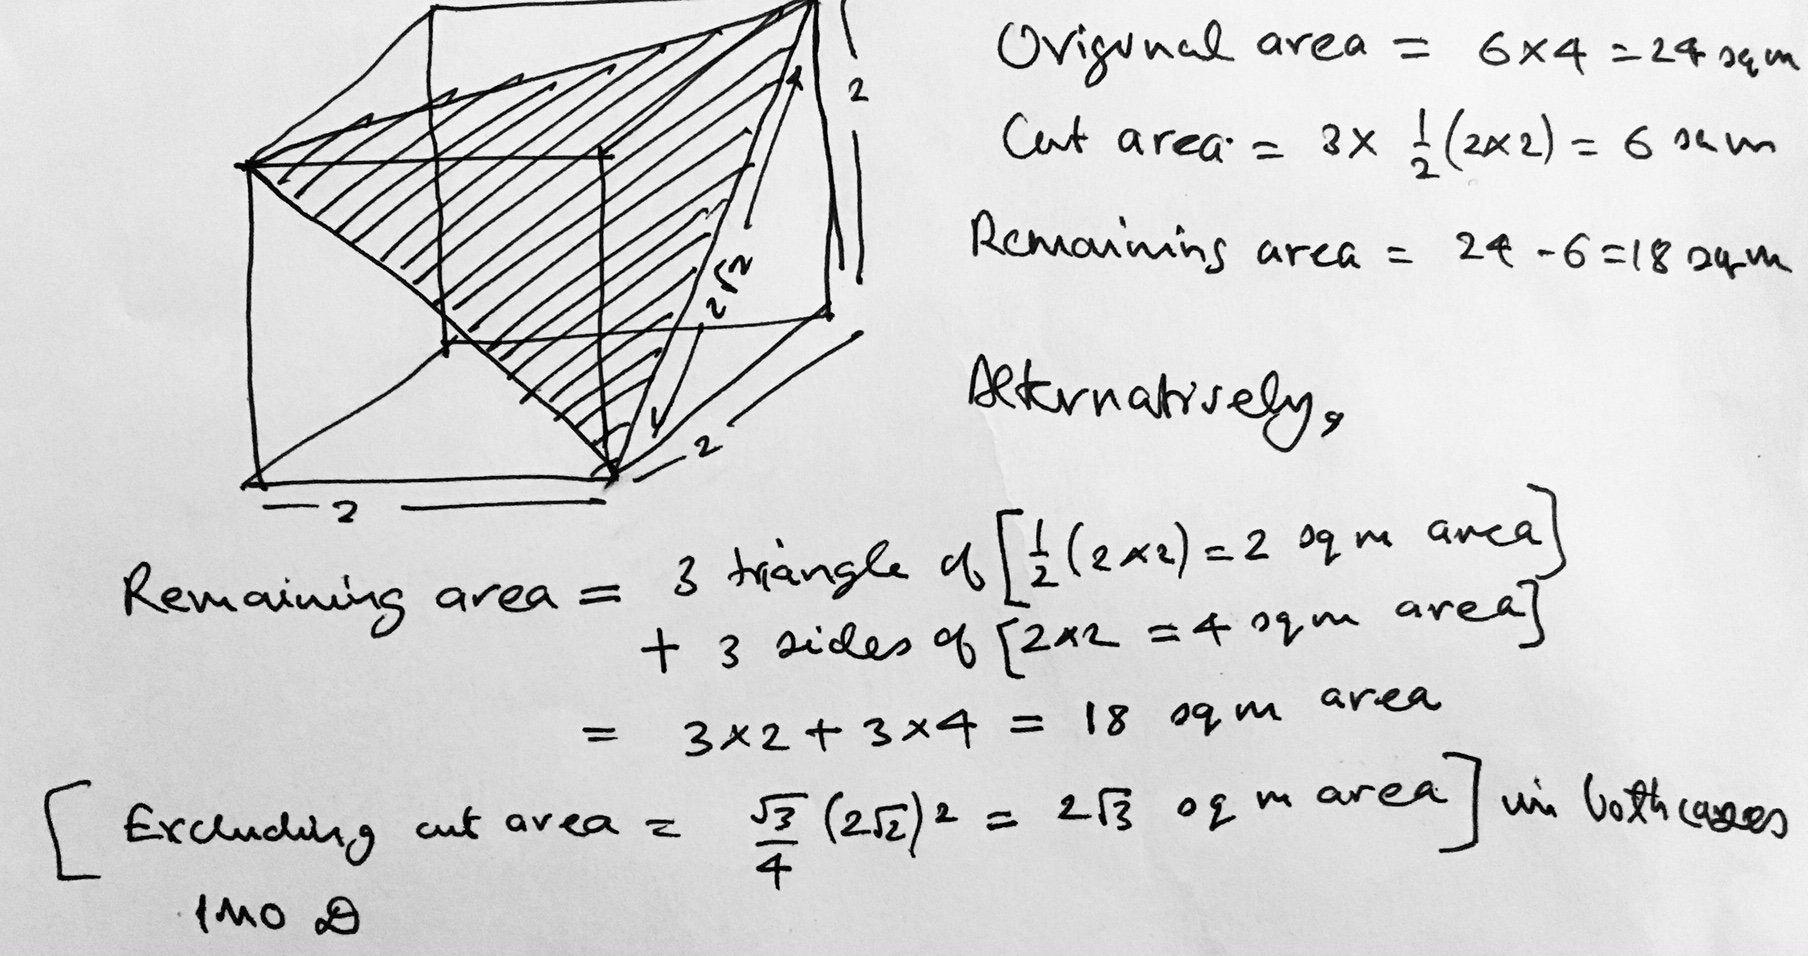 Original area = 6×4 = 24 sqm
Cut area = 3× 1/2 (2×2) = 6 sqm
Remaining area = 24 - 6 = 18 sqm
2
2√2
2
2
Alternatively,
Remaining area = 3 triangle of [1/2 (2×2) = 2 sqm area]
+ 3 sides of [2×2 = 4 sqm area]
= 3×2 + 3×4 = 18 sqm area
[Excluding cut area = √3/4 (2√2)² = 2√3 sqm area] in both cases
IMO D